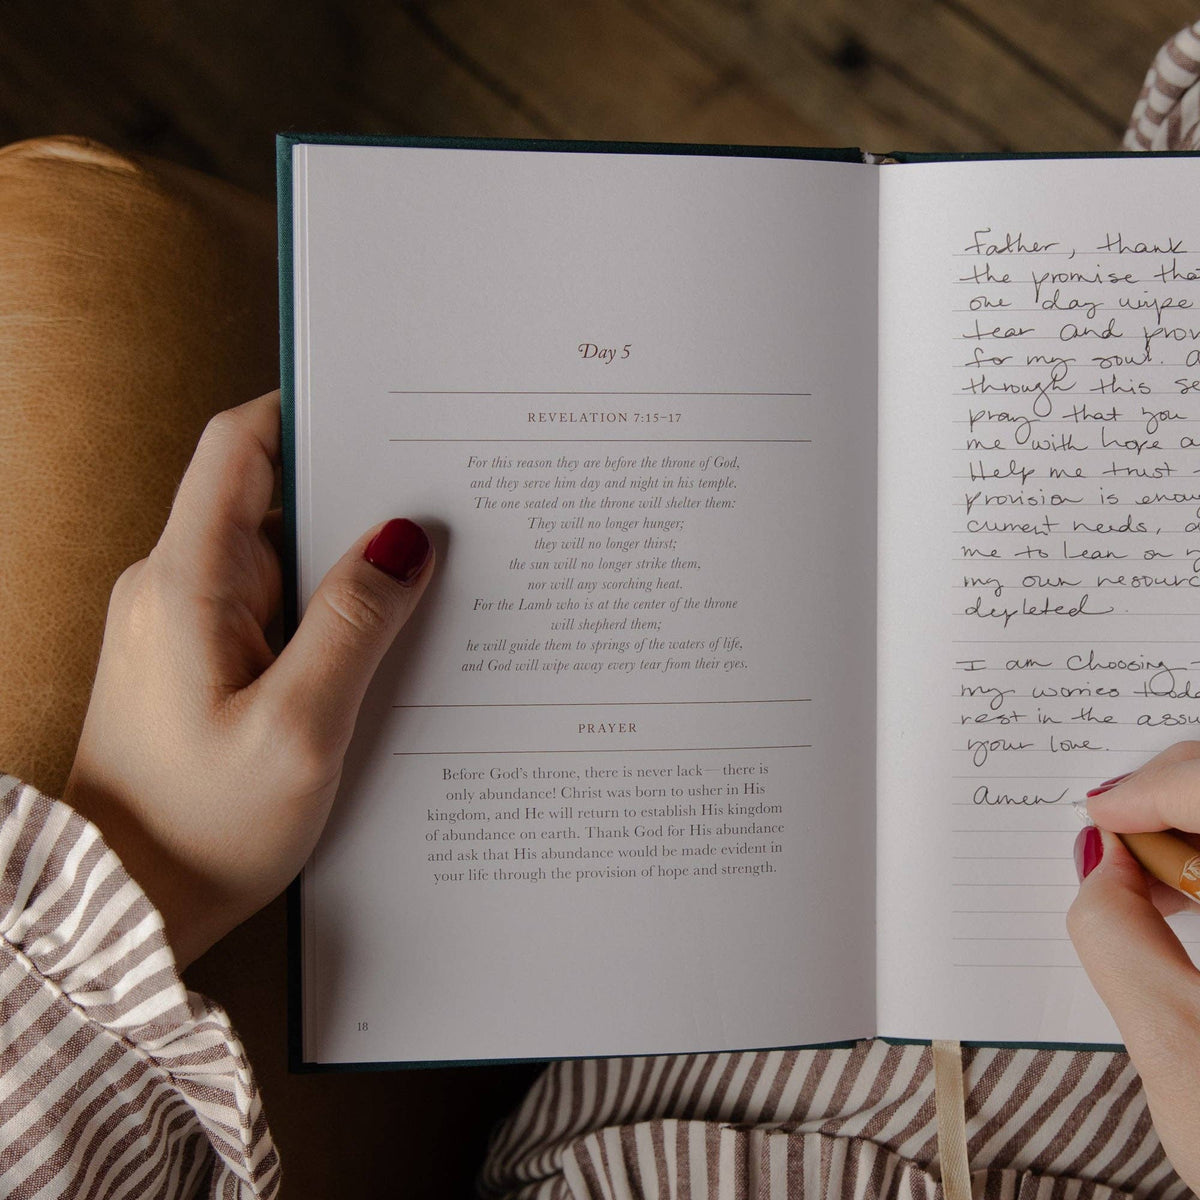 Day 5
REVELATION 7:15–17
For this reason they are before the throne of God,
and they serve him day and night in his temple.
The one seated on the throne will shelter them:
They will no longer hunger;
they will no longer thirst;
the sun will no longer strike them,
nor will any scorching heat.
For the Lamb who is at the center of the throne
will shepherd them;
he will guide them to springs of the waters of life,
and God will wipe away every tear from their eyes.
PRAYER
Before God's throne, there is never lack—there is
only abundance! Christ was born to usher in His
kingdom, and He will return to establish His kingdom
of abundance on earth. Thank God for His abundance
and ask that His abundance would be made evident in
your life through the provision of hope and strength.
18
Father, thank
the promise
one day wipe
tear and
for my soul.
through this
pray that you
me with hope
Help me trust
provision is
current needs,
me to lean on
my own
depleted.
I am choosing
my worries
rest in the
your love.
amen